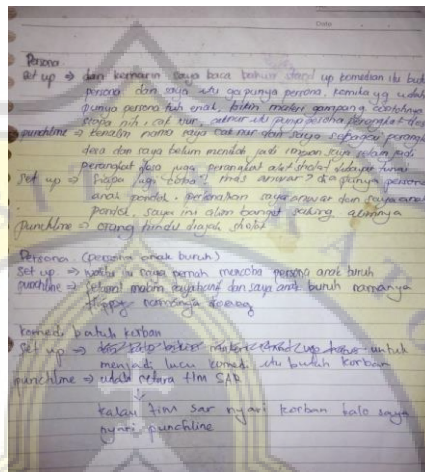 Date
Persona
Set up → dan kemarin saya baca bahwa stand up komedian itu but
persona dan saya itu ga punya persona, komika yg udah
punya persona tuh enak, bikin materi gampang contohnya
siapa nih, cak nur, cak nur itu punya persona perangkat desa
punchline → kenalin nama saya cak nur dan saya sebagai perangk
desa dan saya belum menikah jadi impian saya selain jadi
perangkat desa juga perangkat alat sholat dibayar tunai
Set up → siapa lagi coba? anwar? dia punya persona
anak pondok, perkenalkan saya anwar dan saya anak
pondok, saya ini alim banget saking alimnya
punchline → orang hindu diajak sholat
Persona (persona anak buruh)
Set up → waktu itu saya pernah mencoba persona anak buruh
punchline → selamat malam saya dan saya anak buruh namanya
namanya
komedi butuh korban
Set up → untuk
menjadi lucu komedi itu butuh korban
punchline → udah setara tim SAR
↓
kalau tim sar nyari korban kalo saya
nyari punchline